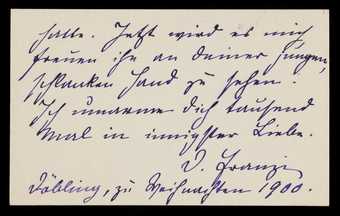 hatte. Jetzt wird es mich
freuen ihn an deiner jungen,
schlanken Hand zu sehen.
Ich umarme dich tausend
Mal in innigster Liebe.
D. Franzi
Döbling, zu Weihnachten 1900.